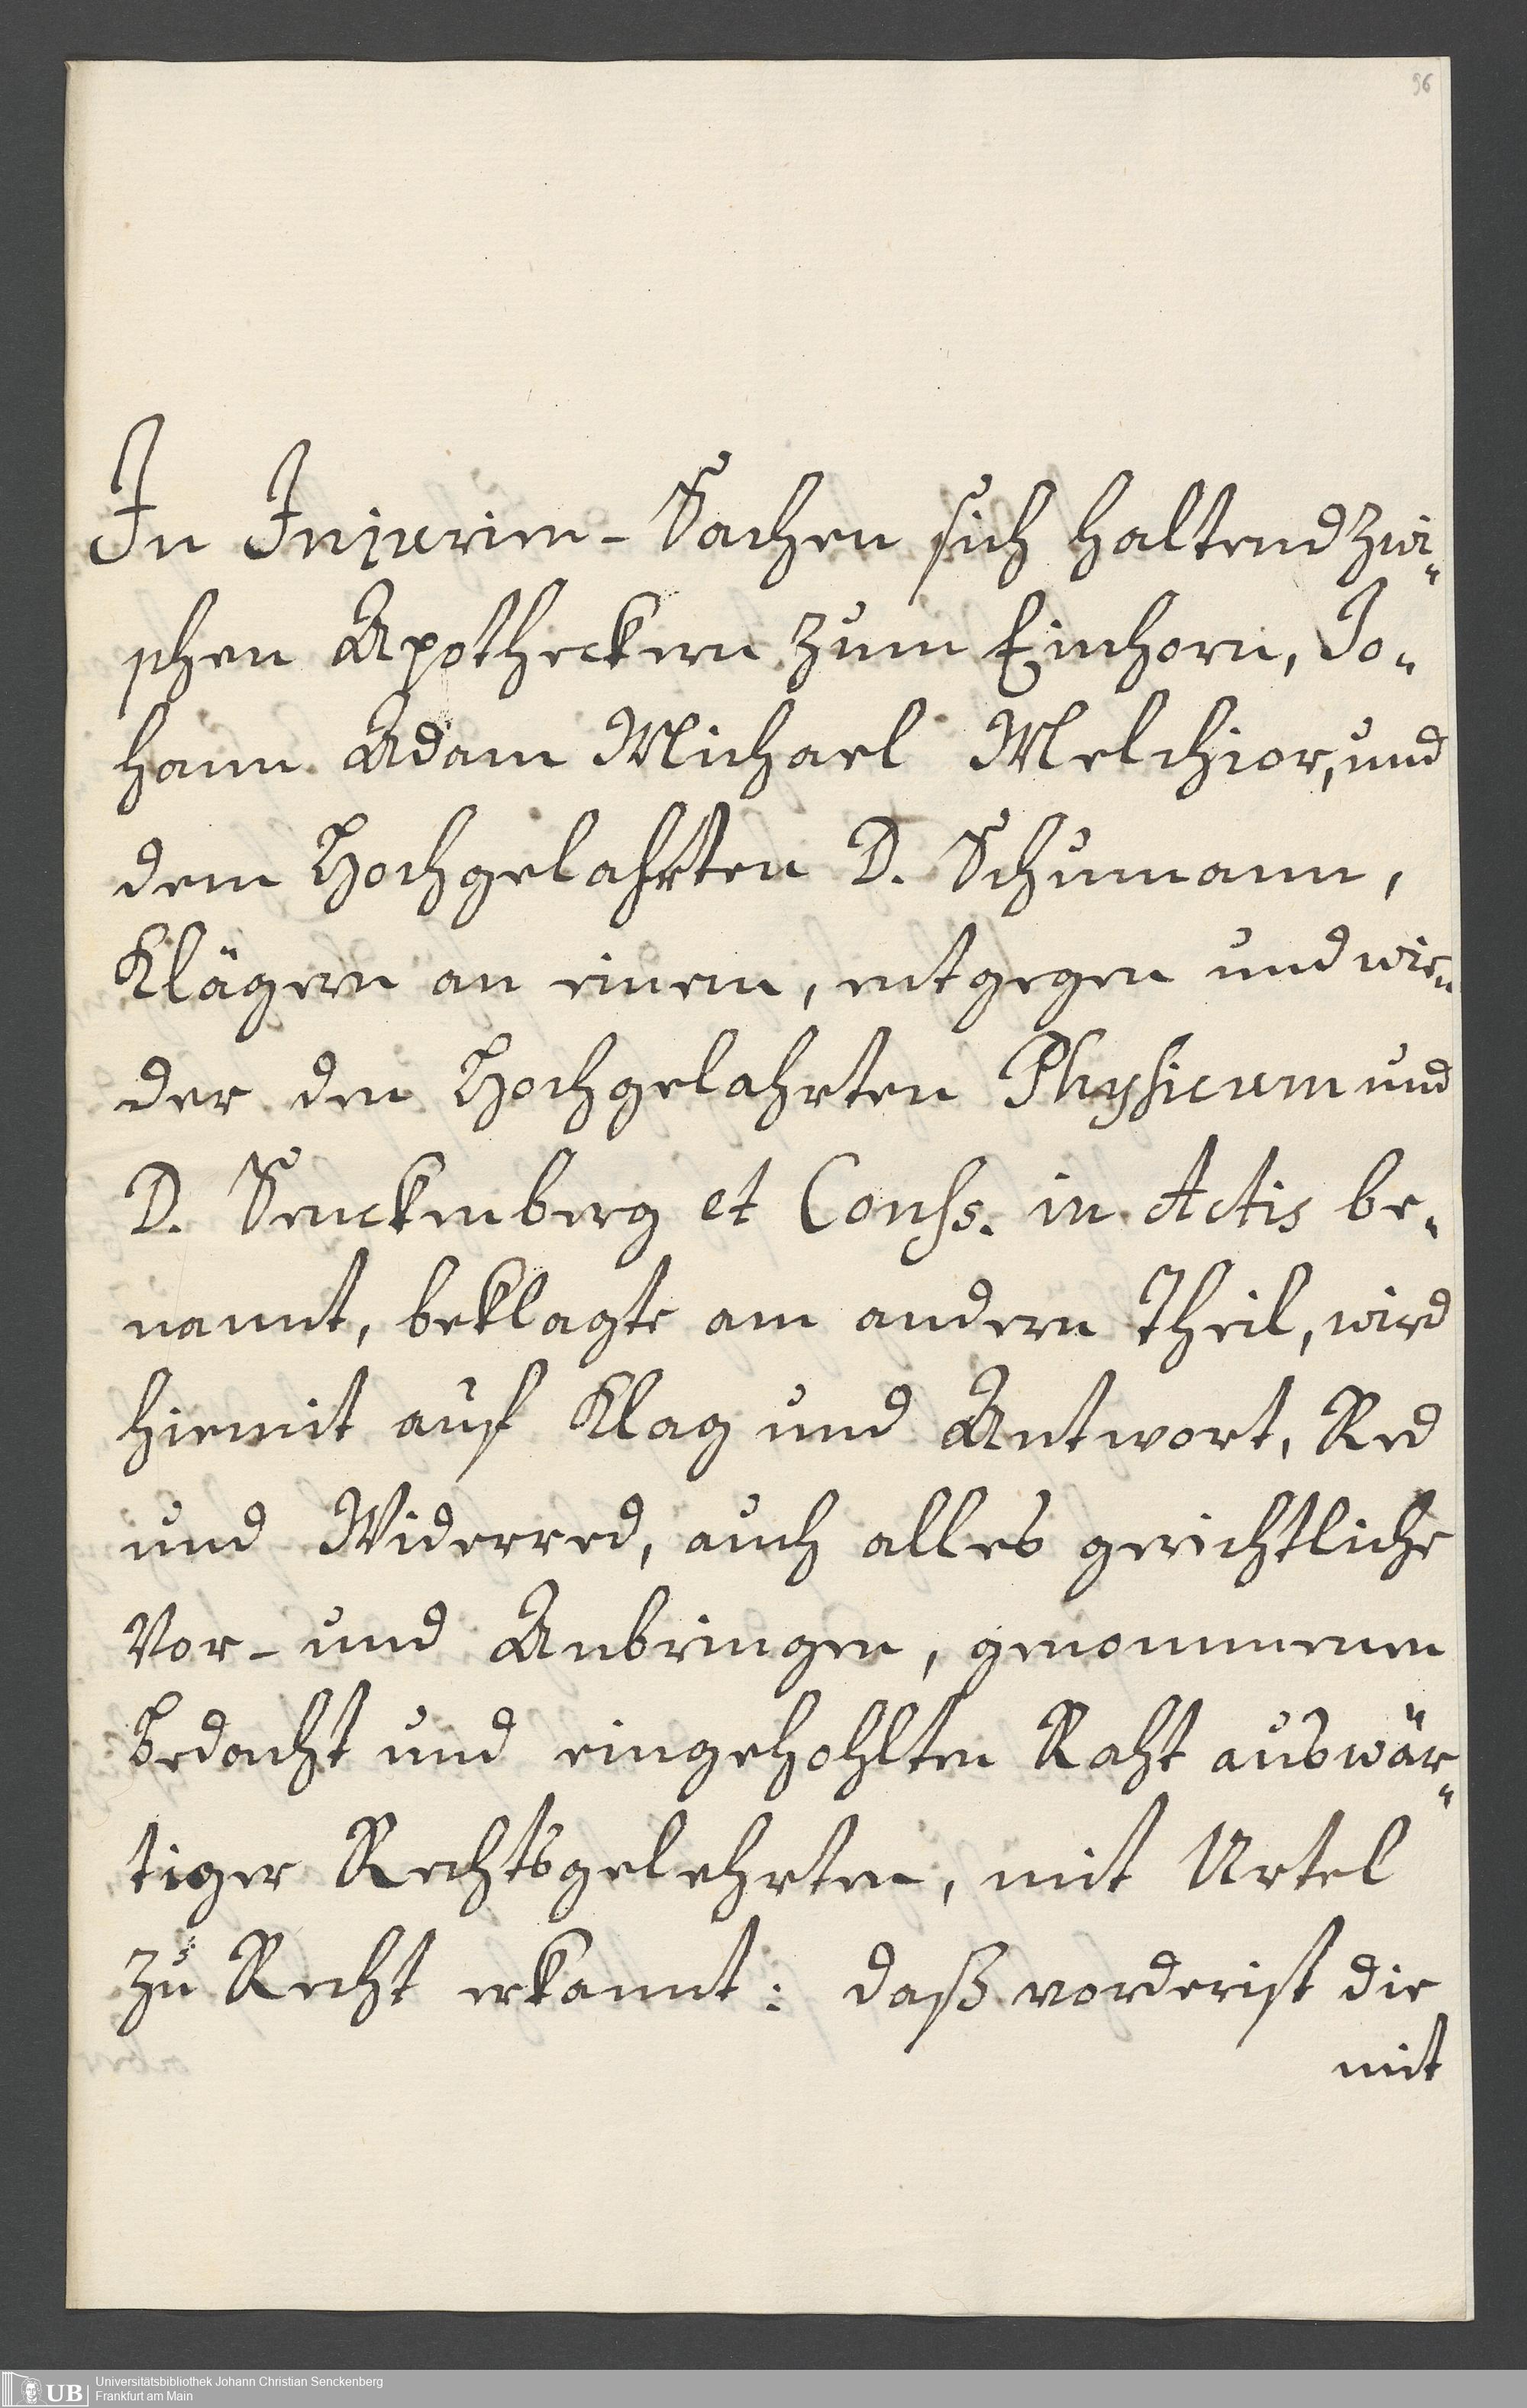 96
In Injurien-Sachen sich haltend zwi„
schen Apotheckern zum Einhorn, Jo„
hann Adam Michael Melchior, und
dem Hochgelahrten D. Schumann,
Klägern an einem, entgegen und wie„
der den Hochgelahrten Physicum und
D. Senckenberg et Conss. in Actis be„
nannt, beklagte am andern Theil, wird
hiemit auf Klag und Antwort, Red
und Widerred, auch alles gerichtliche
Vor- und Anbringen, genommenen
Bedacht und eingehohlten Raht auswär„
tiger Rechtsgelehrten, mit Urtel
zu Recht erkannt: daß vorderist die
mit
UB
Universitätsbibliothek Johann Christian Senckenberg
Frankfurt am Main